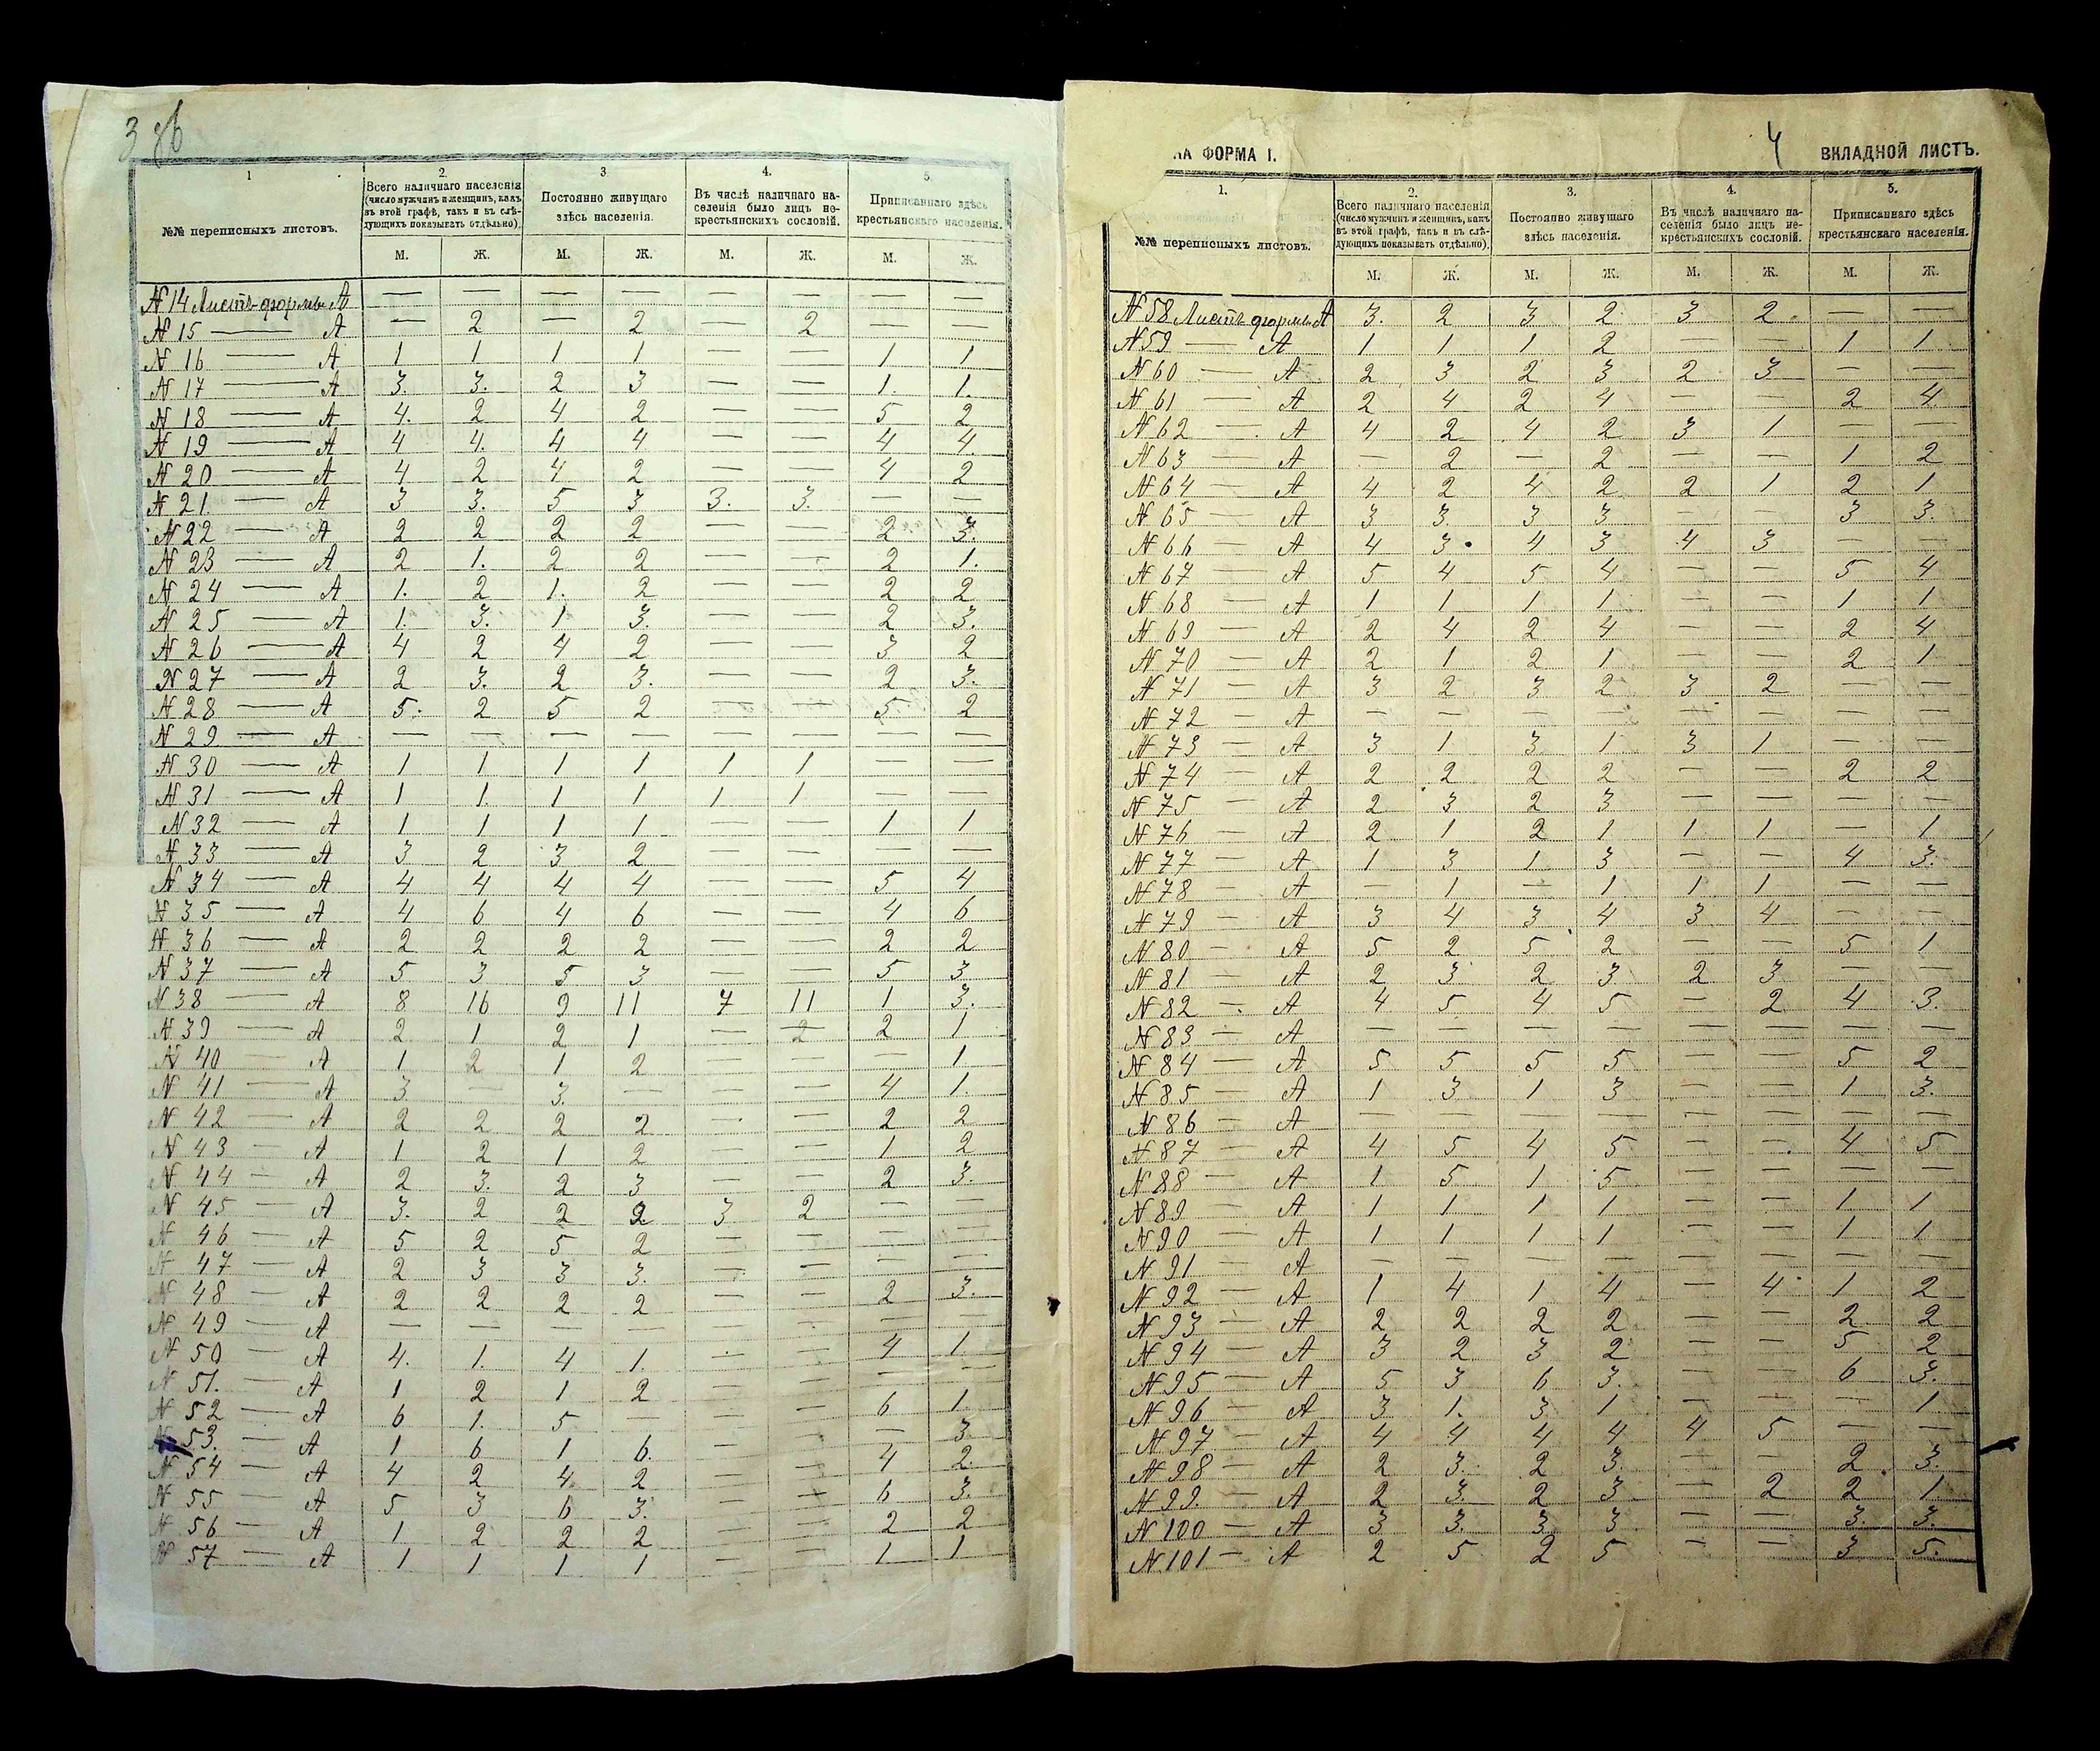 3 об
1 2. 3 4. 5.
№№ переписныхъ листовъ.
Всего наличнаго населенія (число мужчинъ и женщинъ, какъ въ этой графѣ, такъ и въ слѣдующихъ показывать отдѣльно).
Постоянно живущаго здѣсь населенія.
Въ числѣ наличнаго населенія было лицъ некрестьянскихъ сословій.
Приписаннаго здѣсь крестьянскаго населенія.
М. Ж. М. Ж. М. Ж. М. Ж.
N 14 Листъ формы А — — — — — — — —
N 15 — А — 2 — 2 — 2 — —
N 16 — А 1 1 1 1 — — 1 1
N 17 — А 3. 3. 2 3 — — 1. 1.
N 18 — А 4. 2 4 2 — — 5 2
N 19 — А 4 4. 4 4 — — 4 4.
N 20 — А 4 2 4 2 — — 4 2
N 21 — А 3 3. 5 3 3. 3. — —
N 22 — А 2 2 2 2 — — 2 3.
N 23 — А 2 1. 2 2 — — 2 1.
N 24 — А 1. 2 1. 2 — — 2 2
N 25 — А 1. 3. 1 3. — — 2 3.
N 26 — А 4 2 4 2 — — 3 2
N 27 — А 2 3. 2 3. — — 2 3.
N 28 — А 5. 2 5 2 — — 5 2
N 29 — А — — — — — — — —
N 30 — А 1 1 1 1 1 1 — —
N 31 — А 1 1 1 1 1 1 — —
N 32 — А 1 1 1 1 — — 1 1
N 33 — А 3 2 3 2 — — — —
N 34 — А 4 4 4 4 — — 5 4
N 35 — А 4 6 4 6 — — 4 6
N 36 — А 2 2 2 2 — — 2 2
N 37 — А 5 3 5 3 — — 5 3
N 38 — А 8 16 9 11 7 11 1 3.
N 39 — А 2 1 2 1 — 2 1
N 40 — А 1 2 1 2 — — — 1
N 41 — А 3 — 3. — — — 4 1.
N 42 — А 2 2 2 2 — — 2 2
N 43 — А 1 2 1 2 — — 1 2
N 44 — А 2 3. 2 3 — — 2 3.
N 45 — А 3. 2 2 2 3 2 — —
N 46 — А 5 2 5 2 — — — —
N 47 — А 2 3 3 3. — — — —
N 48 — А 2 2 2 2 — — 2 3.
N 49 — А — — — — — — — —
N 50 — А 4. 1. 4 1. — — 4 1.
N 51. — А 1 2 1 2 — — — —
N 52 — А 6 1. 5 — — — 6 1.
53. — А 1 6 1 6. — — — 3
N 54 — А 4 2 4 2 — — 4 2.
N 55 — А 5 3 6 3. — — 6 3.
N 56 — А 1 2 2 2 — — 2 2
N 57 — А 1 1 1 1 — — 1 1
НА ФОРМА I. 4 ВКЛАДНОЙ ЛИСТЪ.
1. 2. 3. 4. 5.
№№ переписныхъ листовъ.
Всего наличнаго населенія (число мужчинъ и женщинъ, какъ въ этой графѣ, такъ и въ слѣдующихъ показывать отдѣльно).
Постоянно живущаго здѣсь населенія.
Въ числѣ наличнаго населенія было лицъ некрестьянскихъ сословій.
Приписаннаго здѣсь крестьянскаго населенія.
М. Ж. М. Ж. М. Ж. М. Ж.
N 58 Листъ формы А 3. 2 3 2 3 2. — —
N 59 — А 1 1 1 2 — — 1 1
N 60 — А 2 3 2 3 2 3 — —
N 61 — А 2 4 2 4 — — 2 4
N 62 — А 4 2 4 2 3 1 — —
N 63 — А — 2 — 2 — — 1 2
N 64 — А 4 2 4 2 2 1 2 1
N 65 — А 3 3. 3 3 — — 3 3.
N 66 — А 4 3. 4 3 4 3 — —
N 67 — А 5 4 5 4 — — 5 4
N 68 — А 1 1 1 1 — — 1 1
N 69 — А 2 4 2 4 — — 2 4
N 70 — А 2 1 2 1 — — 2 1
N 71 — А 3 2 3 2 3 2 — —
N 72 — А — — — — — — — —
N 73 — А 3 1 3 1 3 1 — —
N 74 — А 2 2 2 2 — — 2 2
N 75 — А 2 3 2 3 — — — —
N 76 — А 2 1 2 1 1 1 — 1
N 77 — А 1 3 1 3 — — 4 3.
N 78 — А — 1 — 1 1 1 — —
N 79 — А 3 4 3 4 3 4 — —
N 80 — А 5 2 5 2 — — 5 1
N 81 — А 2 3 2 3 2 3 — —
N 82 — А 4 5 4 5 — 2 4 3.
N 83 — А — — — — — — — —
N 84 — А 5 5 5 5 — — 5 2
N 85 — А 1 3 1 3 — — 1 3.
N 86 — А — — — — — — — —
N 87 — А 4 5 4 5 — — 4 5
N 88 — А 1 5 1 5 — — — —
N 89 — А 1 1 1 1 — — 1 1
N 90 — А 1 1 1 1 — — 1 1
N 91 — А — — — — — — — —
N 92 — А 1 4 1 4 — 4 1 2
N 93 — А 2 2 2 2 — — 2 2
N 94 — А 3 2 3 2 — — 5 2
N 95 — А 5 3 6 3. — — 6 3.
N 96 — А 3 1. 3 1 — — — 1
N 97 — А 4 4 4 4 4 5 — —
N 98 — А 2 3. 2 3. — — 2 3.
N 99. — А 2 3. 2 3 — 2 2 1
N 100 — А 3 3. 3 3 — — 3. 3.
N 101 — А 2 5 2 5 — — 3 5.